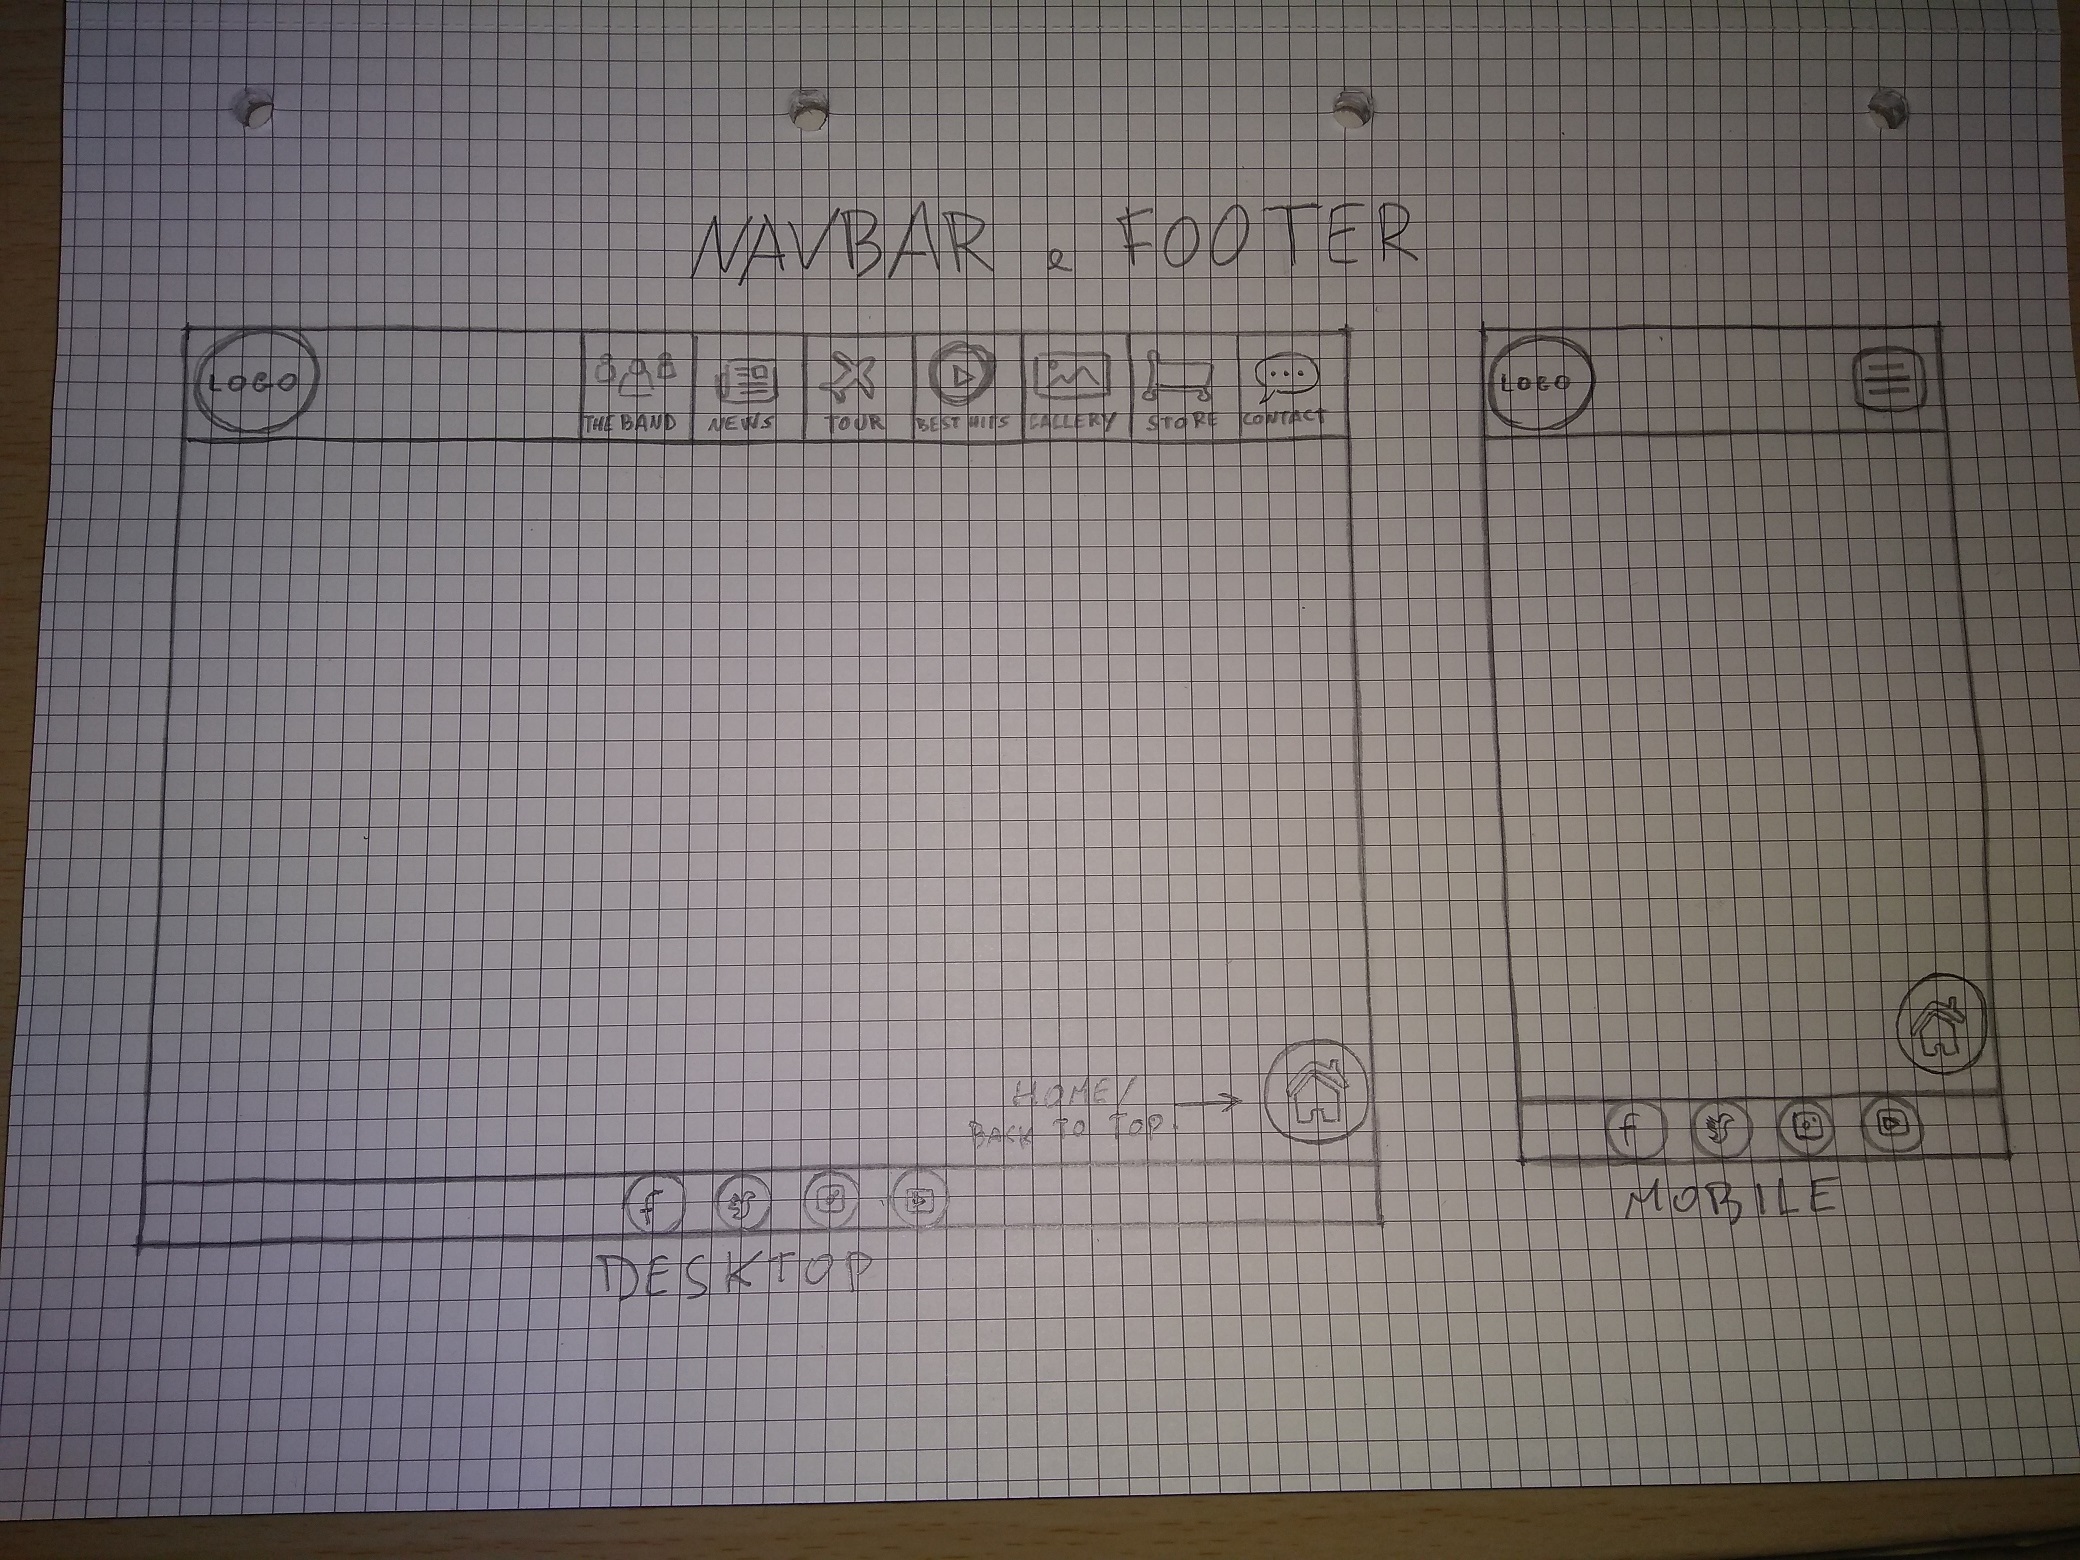 NAVBAR e FOOTER
LOGO
THE BAND
NEWS
TOUR
BEST HITS
GALLERY
STORE
CONTACT
LOGO
HOME/
BACK TO TOP
f
f
DESKTOP
MOBILE